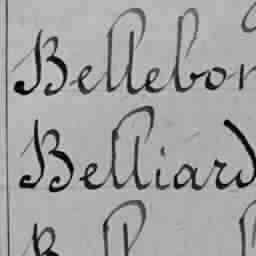 Bellebon
Belliard